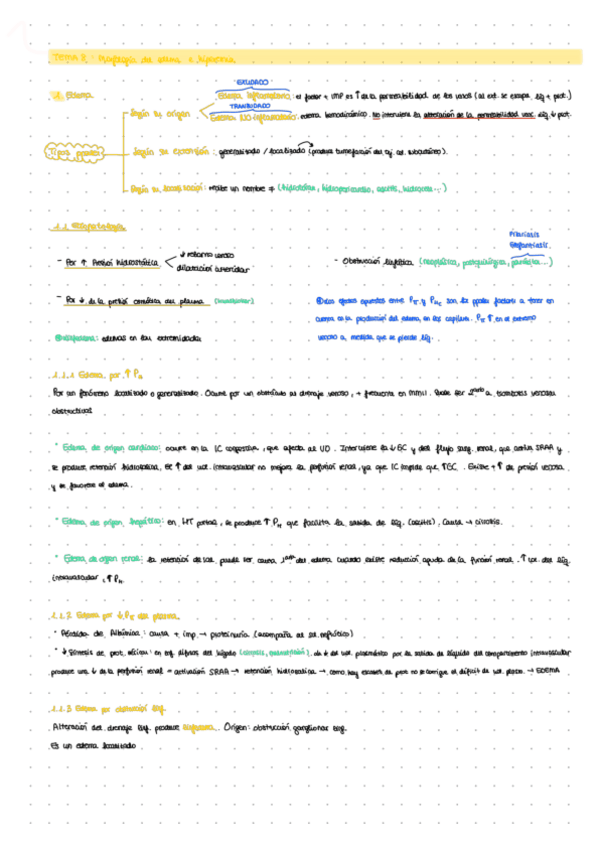 Tema 2: Morfología del edema e hiperemia
· EXUDADO ·
1. Edema
Edema inflamatorio: el factor + IMP es ↑ de la permeabilidad de los vasos (al ext. se escapa líq + prot.)
Según su origen
TRANSUDADO
Edema NO inflamatorio: edema hemodinámico. No interviene la alteración de la permeabilidad vasc. líq ↓ prot.
Tipos
Según su extensión: generalizado / localizado (produce tumefacción del tej. cel. subcutáneo).
Según su localización: recibe un nombre ≠ (hidrotórax, hidropericardio, ascitis, hidrocele...)
1.1
Filariasis
Elefantiasis.
- Por ↑ Presión hidrostática
↓ retorno venoso
dilatación arteriolar
- Obstrucción linfática (neoplásica, postquirúrgica, parasitaria...)
- Por ↓ de la presión oncótica del plasma
Los efectos opuestos entre Pπ y PHC son los ppales factores a tener en
cuenta en la producción del edema, en los capilares. Pπ ↑ en el extremo
venoso a medida que se pierde líq.
edemas en las extremidades
1.1.1 Edema por ↑ PH
Por un fenómeno localizado o generalizado. Ocurre por un obstáculo al drenaje venoso, + frecuente en MMII. Puede ser 2dario a trombosis venosas
obstructivas
* Edema de origen cardíaco: ocurre en la IC congestiva, que afecta al VD. Interviene la ↓ GC y del flujo sang. renal, que activa SRAA y
se produce retención hidrosalina, se ↑ del vol. intravascular no mejora la perfusión renal, ya que IC impide que ↑GC. Existe + ↑ de presión venosa
y se favorece el edema.
* Edema de origen hepático: en HT portal, se produce ↑ PH que facilita la salida de líq. (ascitis). Causa → cirrosis.
* Edema de origen renal: la retención de sal puede ser causa 1aria del edema cuando existe reducción aguda de la función renal. ↑ vol. del líq.
intravascular, ↑ PH.
1.1.2 Edema por ↓ Pπ del plasma.
* Pérdida de Albúmina: causa + imp. → proteinuria (acompaña al sd. nefrótico)
* ↓ Síntesis de prot. séricas: en enf. difusas del hígado (cirrosis, desnutrición), da ↓ del vol. plasmático por la salida de líquido del compartimento intravascular
produce una ↓ de la perfusión renal = activación SRAA → retención hidrosalina → como hay escasez de prot no se corrige el déficit de vol. plasm. → EDEMA
1.1.3 Edema por obstrucción linf.
Alteración del drenaje linf. produce linfedema. Origen: obstrucción ganglionar linf.
Es un edema localizado